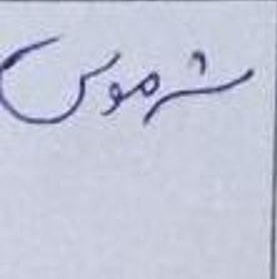 شرموس